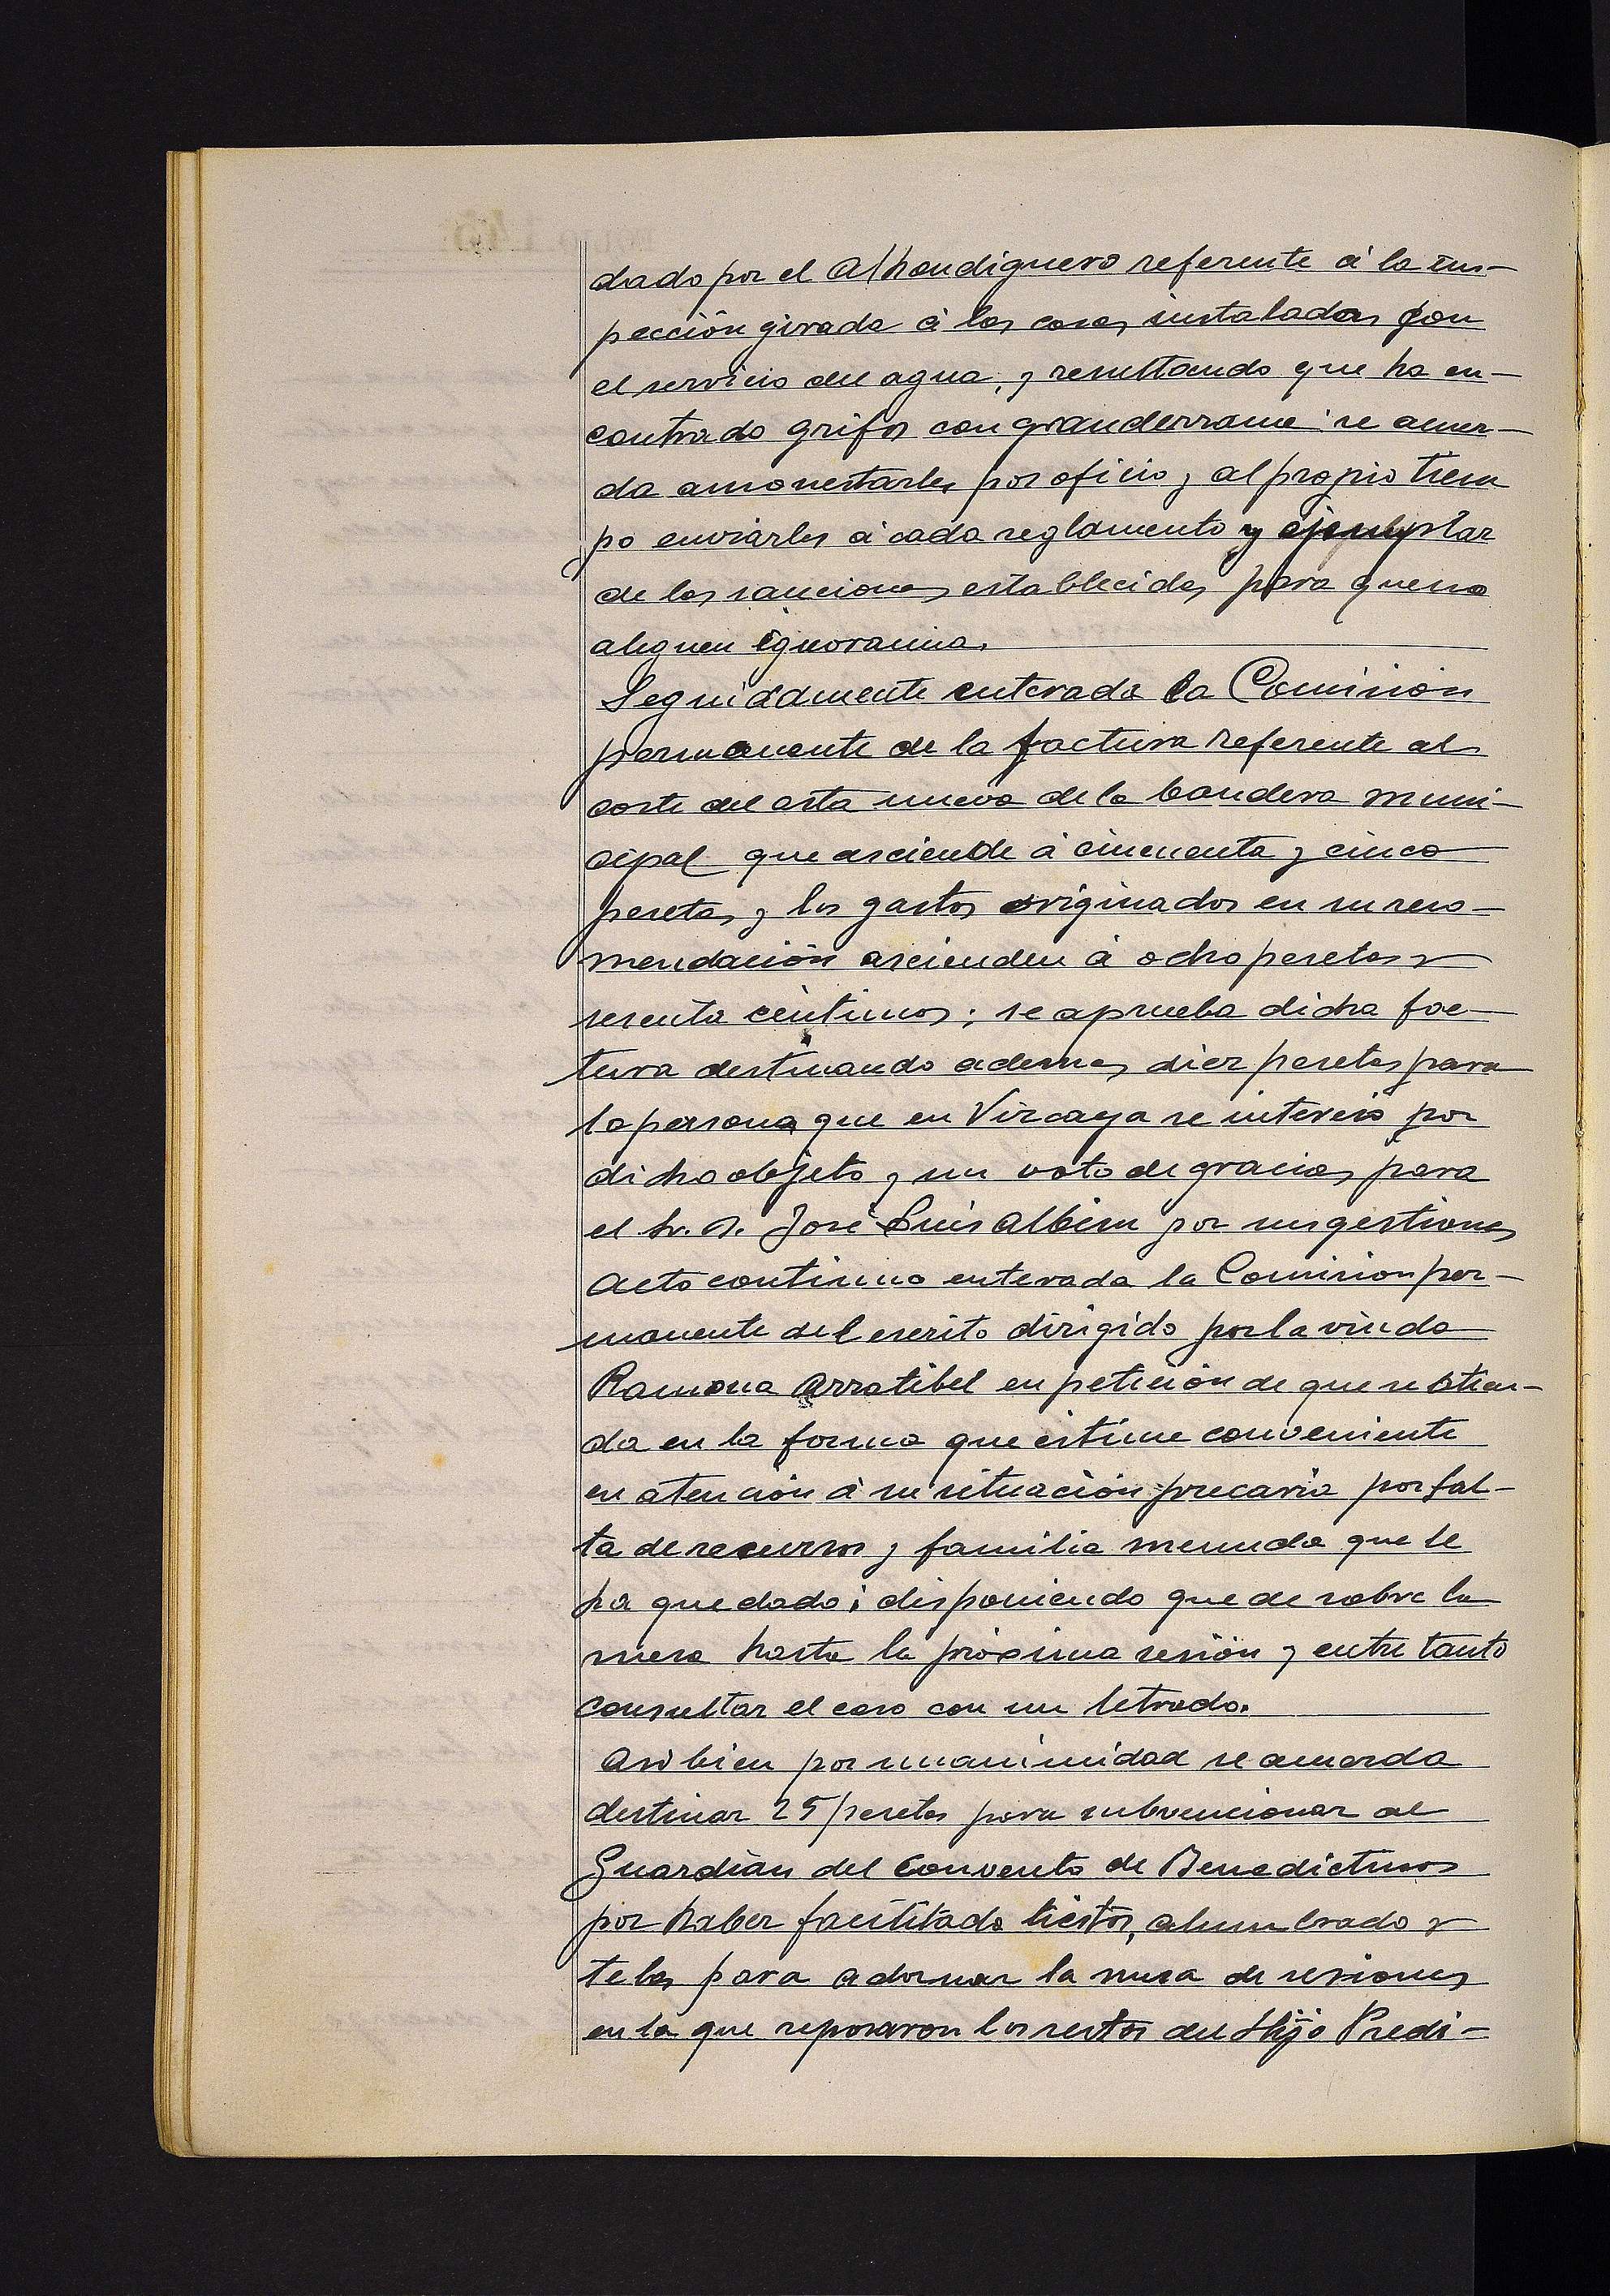 dado por el Alhondiguero referente á la ins-
pección girada á las casas instaladas con
el servicio del agua, y resultando que ha en-
contrado grifos con gran derrame se acuer-
da amonestarles por oficio y al propio tiem
po enviarles á cada reglamento y ejemplar
de las sanciones establecidas para que no
aleguen ignorancia.
Seguidamente enterada la Comisión
permanente de la factura referente al
coste del asta nueva de la bandera muni-
cipal que asciende á cincuenta y cinco
pesetas y los gastos originados en su reco-
mendación ascienden á ocho pesetas y
sesenta céntimos; se aprueba dicha fac-
tura destinando ademas diez pesetas para
la persona que en Vizcaya se interesó por
dicho objeto y un voto de gracias para
el Sr. D. José Luis Albisu por sus gestiones
Acto continuo enterada la Comision per-
manente del escrito dirigido por la viuda
Ramona Arratibel en petición de que se atien-
da en la forma que estime conveniente
en atención á su situación precaria por fal-
ta de recursos y familia menuda que le
ha quedado; disponiendo quede sobre la
mesa hasta la próxima sesión y entre tanto
consultar el caso con un letrado.
Asi bien por unanimidad se acuerda
destinar 25 pesetas para subvencionar al
Guardián del Convento de Benedictinos
por haber facilitado tiestos, alumbrado y
telas para adornar la mesa de sesiones
en la que reposaron los restos del Hijo Predi-